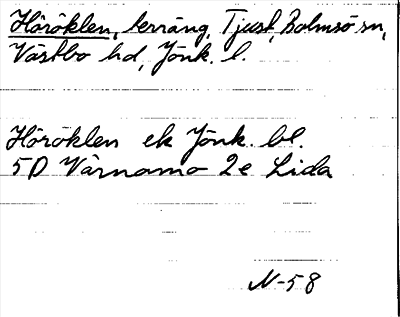 Höröklen, terräng, Tjust, Bolmsö sn,
Västbo hd, Jönk. l.
Höröklen ek Jönk. bl.
5D Värnamo 2e Lida
N-58